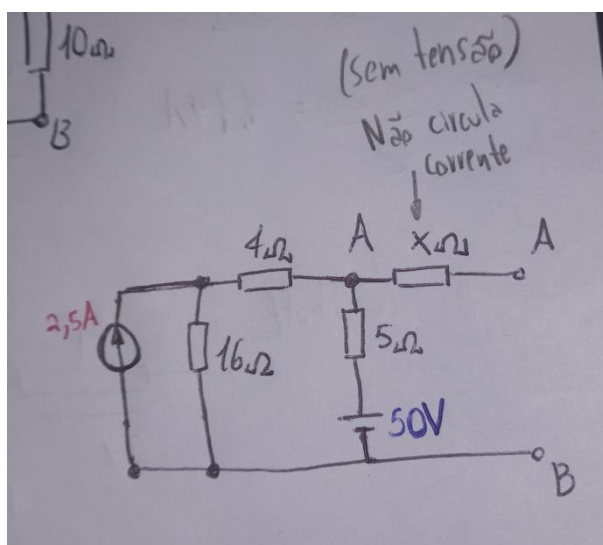 10Ω
B
(sem tensão)
Não circula
corrente
4Ω
A
XΩ
A
2,5A
16Ω
5Ω
50V
B